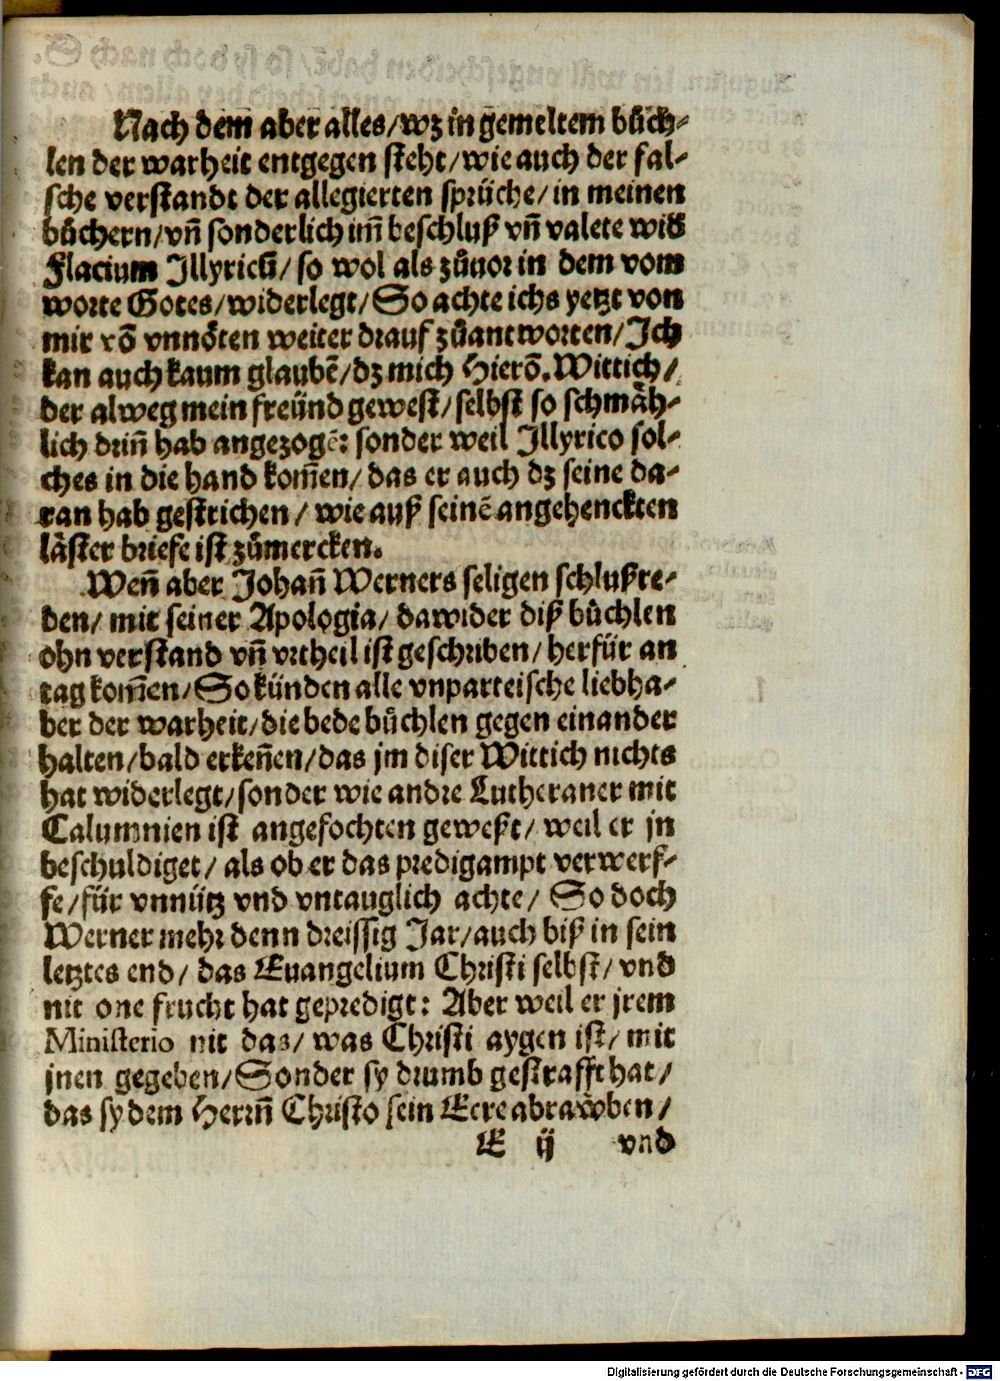 Nach dem̃ aber alles/wz in gemeltem bůch-
len der warheit entgegen steht/wie auch der fal-
sche verstandt der allegierten sprüche/in meinen
bůchern/vñ sonderlich im̃ beschluß vñ valete wid
Flacium Illyricũ/ so wol als zůuor in dem vom
worte Gotes/widerlegt/So achte ichs yetzt von
mir võ vnnöten weiter drauf zůantworten/Ich
kan auch kaum glaubẽ/dz mich Hierõ. Wittich/
der alweg mein freünd gewest/selbst so schmäh-
lich driñ hab angezogẽ: sonder weil Illyrico sol-
ches in die hand kom̃en/das er auch dz seine da-
ran hab gestrichen/ wie auß seinẽ angehenckten
läster briefe ist zůmercken.
Weñ aber Johañ Werners seligen schlußre-
den/ mit seiner Apologia/ dawider diß bůchlen
ohn verstand vñ vrtheil ist geschriben/herfür an
tag kom̃en/So künden alle vnparteische liebha-
ber der warheit/die bede bůchlen gegen einander
halten/bald erkeñen/das jm diser Wittich nichts
hat widerlegt/sonder wie andre Lutheraner mit
Calumnien ist angefochten geweßt/ weil er jn
beschuldiget/ als ob er das predigampt verwerf-
fe/für vnnütz vnd vntauglich achte/ So doch
Werner mehr denn dreissig Jar/auch biß in sein
letztes end/ das Euangelium Christi selbst/ vnd
nit one frucht hat gepredigt: Aber weil er jrem
Ministerio nit das/ was Christi aygen ist/ mit
jnen gegeben/Sonder sy drumb gestrafft hat/
das sy dem Herrñ Christo sein Eere abrawben/
E ij vnd
Digitalisierung gefördert durch die Deutsche Forschungsgemeinschaft - DFG